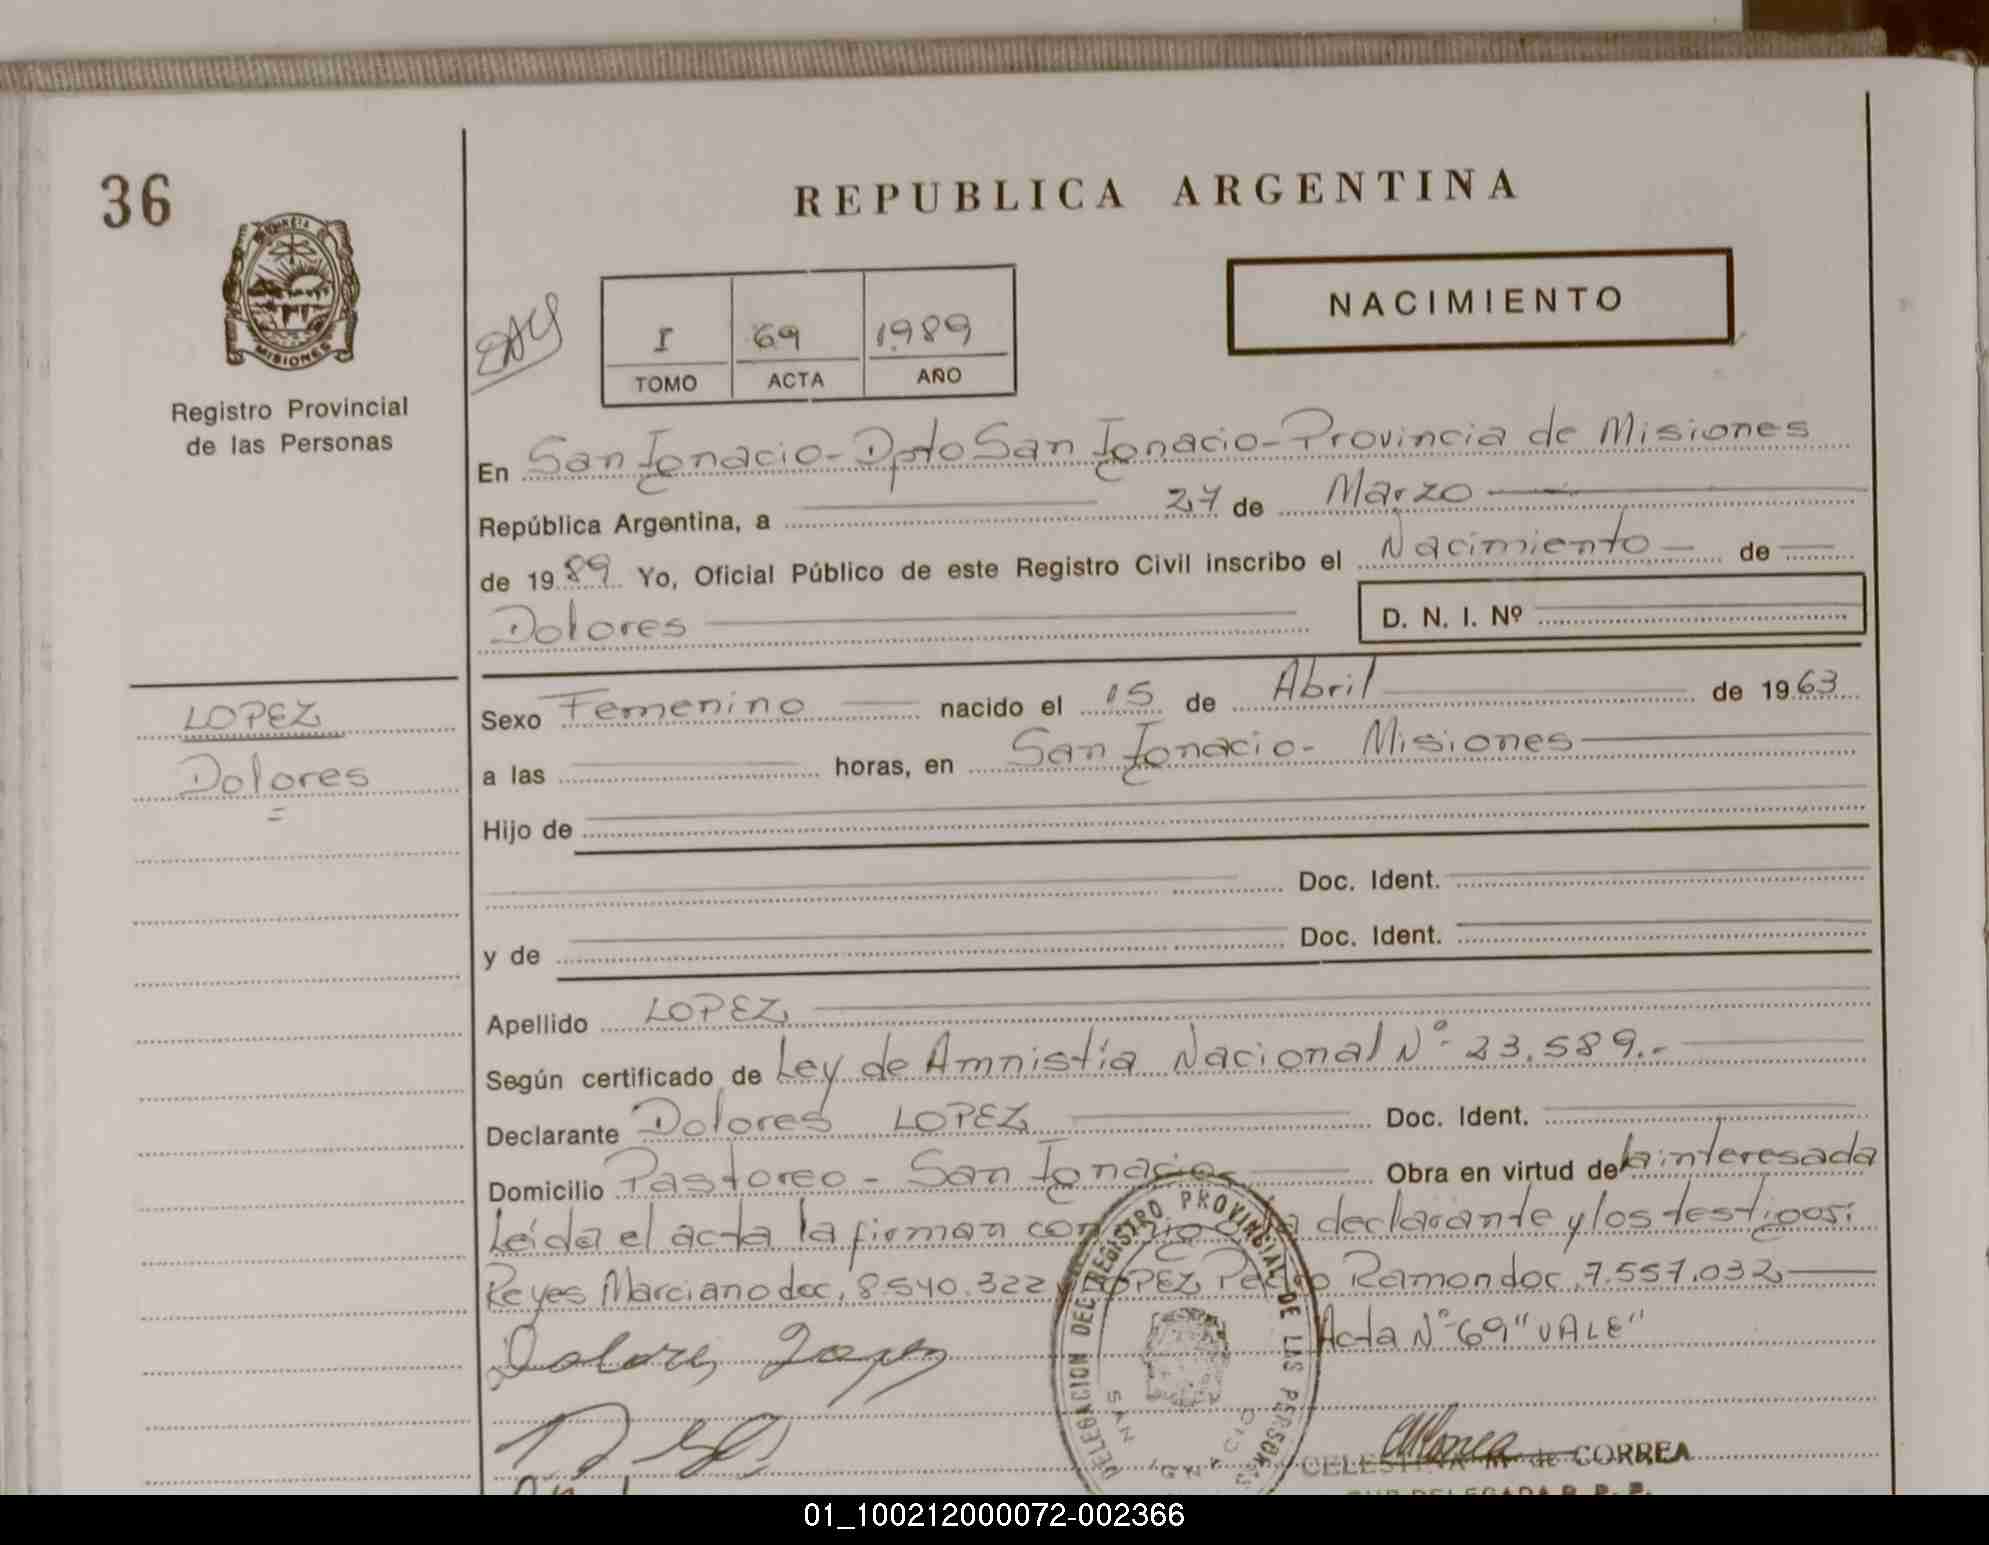 36
REPUBLICA ARGENTINA
NACIMIENTO
MISIONES
Registro Provincial
de las Personas
I 69 1989
TOMO ACTA AÑO
En San Ignacio - Dpto San Ignacio - Provincia de Misiones
República Argentina, a 27 de Marzo
de 1989 Yo, Oficial Público de este Registro Civil inscribo el Nacimiento de
Dolores D. N. I. Nº
LOPEZ
Dolores
Sexo Femenino nacido el 15 de Abril de 1963
a las horas, en San Ignacio - Misiones
Hijo de
Doc. Ident.
y de Doc. Ident.
Apellido LOPEZ
Según certificado de Ley de Amnistía Nacional Nº 23.589.-
Declarante Dolores LOPEZ Doc. Ident.
Domicilio Pastoreo - San Ignacio Obra en virtud de la interesada
Leída el acta la firman conmigo la declarante y los testigos:
Reyes Marciano doc. 8.540.322 y LOPEZ Pedro Ramon doc. 7.557.032
Acta Nº 69 "VALE"
Dolores Lopez
DELEGACION DEL REGISTRO PROVINCIAL DE LAS PERSONAS
SAN IGNACIO
CELESTINA M. de CORREA
SUB DELEGADA R. P. P.
01_100212000072-002366